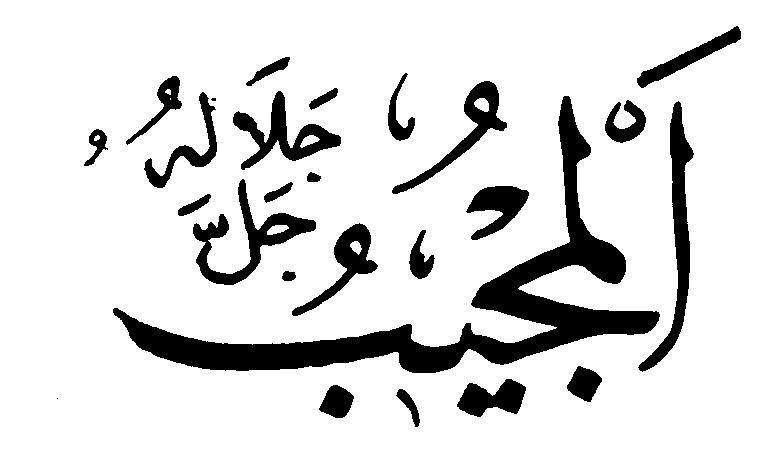 اَلْمُجِيبُ
جَلَّ
جَلَالُهُ